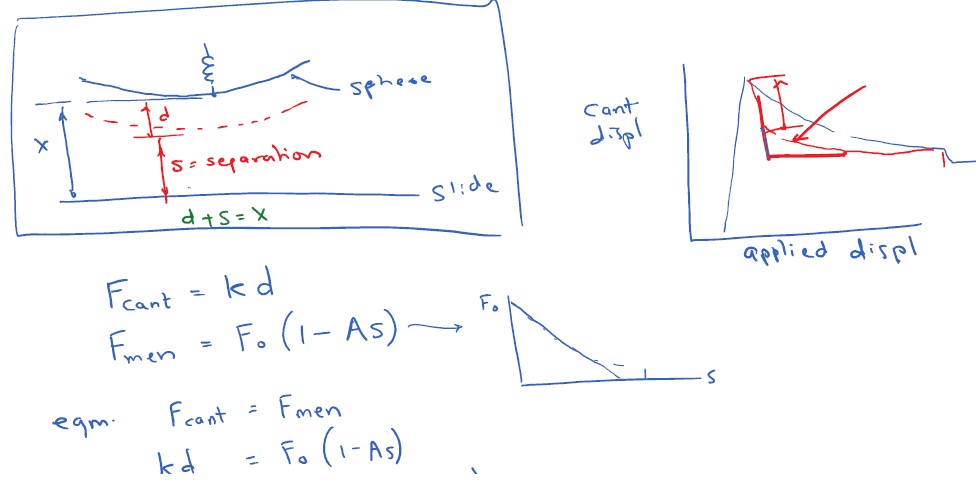 sphere
d
x
s = separation
slide
d + s = x
Cant
displ
applied displ
F cant = k d
F men = F₀ (1 - As)
F₀
s
eqm. F cant = F men
k d = F₀ (1 - As)